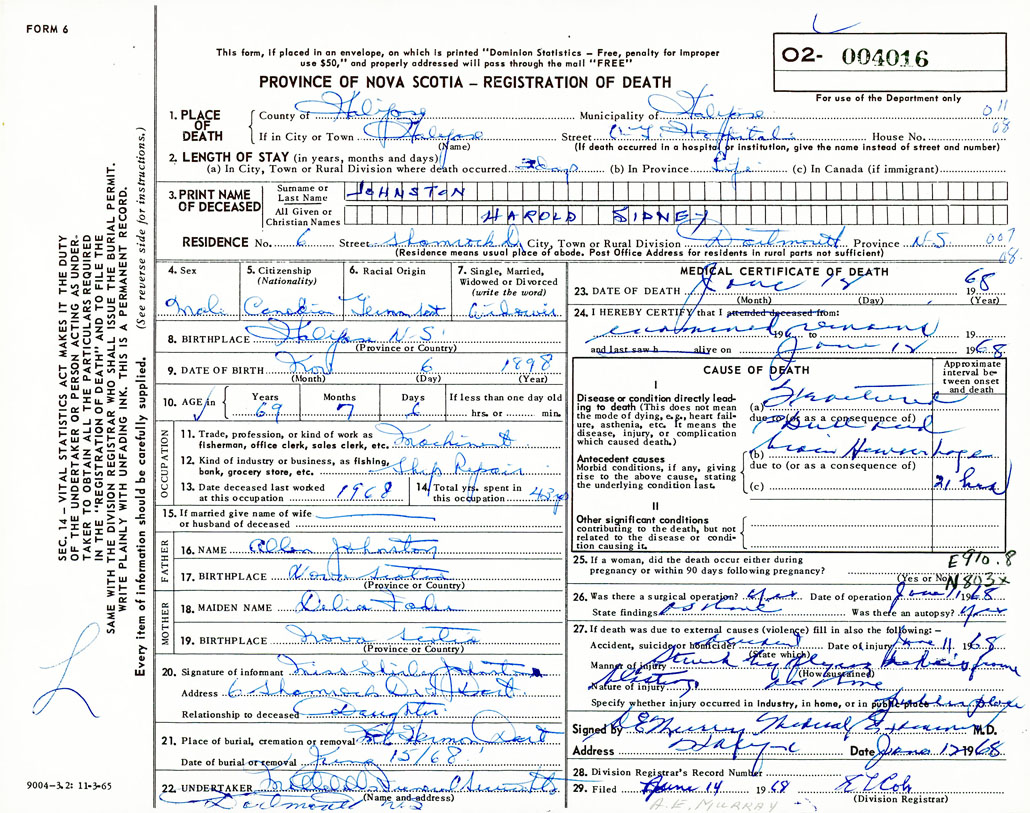 FORM 6
This form, if placed in an envelope, on which is printed "Dominion Statistics – Free, penalty for improper
use $50," and properly addressed will pass through the mail "FREE"
O2- 004016
For use of the Department only
PROVINCE OF NOVA SCOTIA – REGISTRATION OF DEATH
1. PLACE OF DEATH
County of Halifax Municipality of Halifax 011
If in City or Town Halifax Street V.G. Hospital House No. 08
(Name) (If death occurred in a hospital or institution, give the name instead of street and number)
2. LENGTH OF STAY (in years, months and days)
(a) In City, Town or Rural Division where death occurred days (b) In Province Life (c) In Canada (if immigrant)
3. PRINT NAME OF DECEASED
Surname or Last Name JOHNSTON
All Given or Christian Names HAROLD SIDNEY
RESIDENCE No. 6 Street Shamrock D City, Town or Rural Division Dartmouth Province N.S. 007
(Residence means usual place of abode. Post Office Address for residents in rural parts not sufficient) 08.
4. Sex
Male
5. Citizenship (Nationality)
Canadian
6. Racial Origin
7. Single, Married, Widowed or Divorced (write the word)
Widower
8. BIRTHPLACE Halifax N-S
(Province or Country)
9. DATE OF BIRTH Nov 6 1898
(Month) (Day) (Year)
10. AGE in
Years 69
Months 7
Days 6
If less than one day old
hrs. or min.
OCCUPATION
11. Trade, profession, or kind of work as fisherman, office clerk, sales clerk, etc. Machinist
12. Kind of industry or business, as fishing, bank, grocery store, etc. Ship Repair
13. Date deceased last worked at this occupation 1968
14. Total yrs. spent in this occupation 43 yrs
15. If married give name of wife or husband of deceased
FATHER
16. NAME Allen Johnston
17. BIRTHPLACE Nova Scotia
(Province or Country)
MOTHER
18. MAIDEN NAME Delia
19. BIRTHPLACE Nova Scotia
(Province or Country)
20. Signature of informant Miss Shirley Johnston
Address 6 Shamrock Dr Dart
Relationship to deceased Daughter
21. Place of burial, cremation or removal Mt Hermon Dart
Date of burial or removal June 15/68
22. UNDERTAKER
(Name and address)
Dartmouth N.S
MEDICAL CERTIFICATE OF DEATH
23. DATE OF DEATH June 12 1968
(Month) (Day) (Year)
24. I HEREBY CERTIFY that I attended deceased from:
examined remains 19 to 19
and last saw h alive on June 12 1968
CAUSE OF DEATH
Approximate interval between onset and death
I
Disease or condition directly leading to death (This does not mean the mode of dying, e.g., heart failure, asthenia, etc. It means the disease, injury, or complication which caused death.)
(a) Fractured
due to (or as a consequence of)
Skull and
Antecedent causes
Morbid conditions, if any, giving rise to the above cause, stating the underlying condition last.
(b) brain Hemorrhage
due to (or as a consequence of)
(c) 21 hrs
II
Other significant conditions contributing to the death, but not related to the disease or condition causing it.
25. If a woman, did the death occur either during pregnancy or within 90 days following pregnancy?
(Yes or No)
E910.8
N803x
26. Was there a surgical operation? yes Date of operation June 1968
State findings as above Was there an autopsy? yes
27. If death was due to external causes (violence) fill in also the following:–
Accident, suicide or homicide? accident Date of injury June 11, 1968
(State which)
Manner of injury Struck by flying from
(How sustained)
Nature of injury
Specify whether injury occurred in industry, in home, or in public place
Signed by Medical Examiner M.D.
Address Halifax Date June 12 1968
28. Division Registrar's Record Number
29. Filed June 14 1968
(Division Registrar)
A.E. MURRAY
SEC. 14 – VITAL STATISTICS ACT MAKES IT THE DUTY
OF THE UNDERTAKER OR PERSON ACTING AS UNDER-
TAKER TO OBTAIN ALL THE PARTICULARS REQUIRED
IN THE "REGISTRATION OF DEATH" AND TO FILE THE
SAME WITH THE DIVISION REGISTRAR WHO SHALL ISSUE THE BURIAL PERMIT.
WRITE PLAINLY WITH UNFADING INK. THIS IS A PERMANENT RECORD.
Every item of information should be carefully supplied. (See reverse side for instructions.)
9004–3.2: 11-3-65